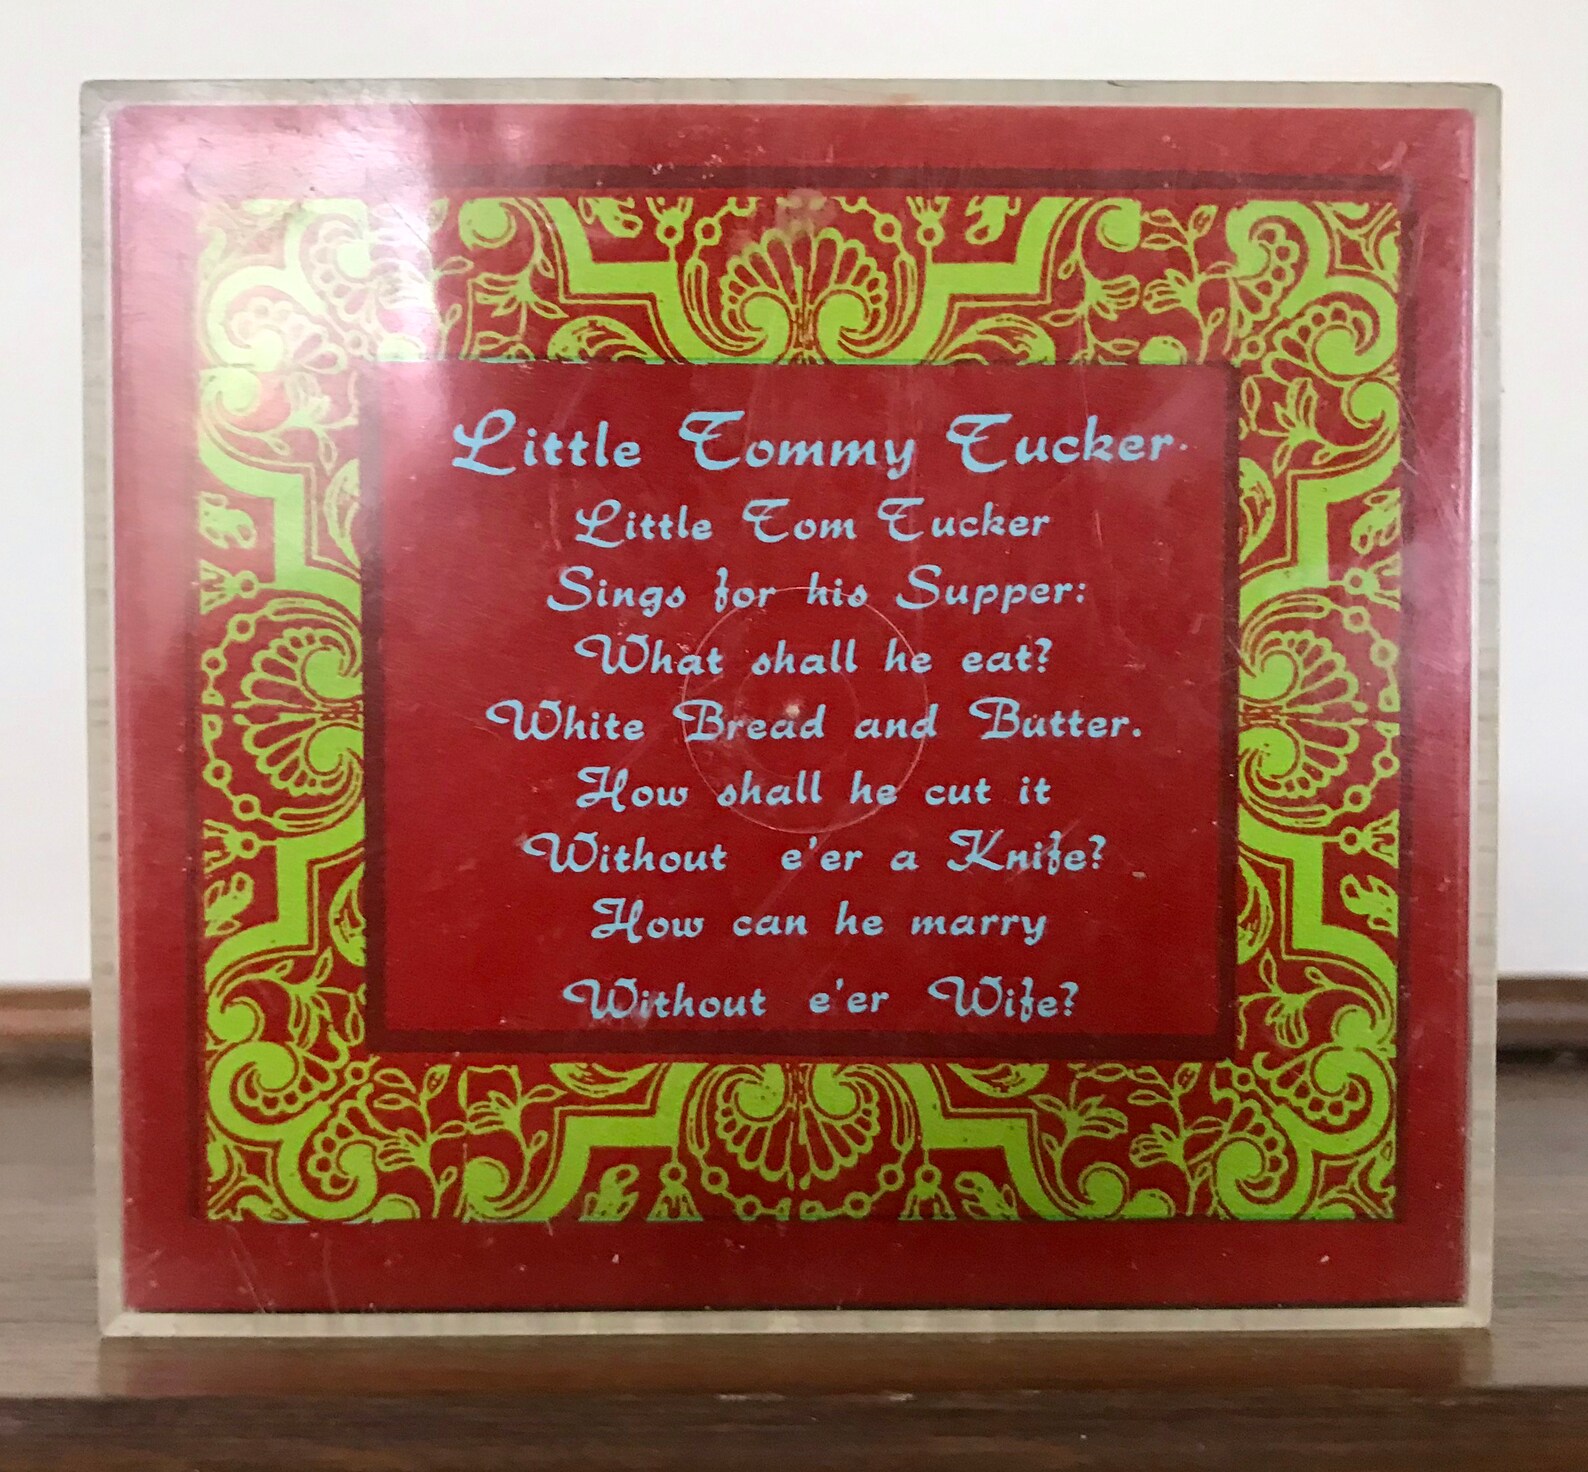 Little Tommy Tucker.
Little Tom Tucker
Sings for his Supper:
What shall he eat?
White Bread and Butter.
How shall he cut it
Without e'er a Knife?
How can he marry
Without e'er Wife?